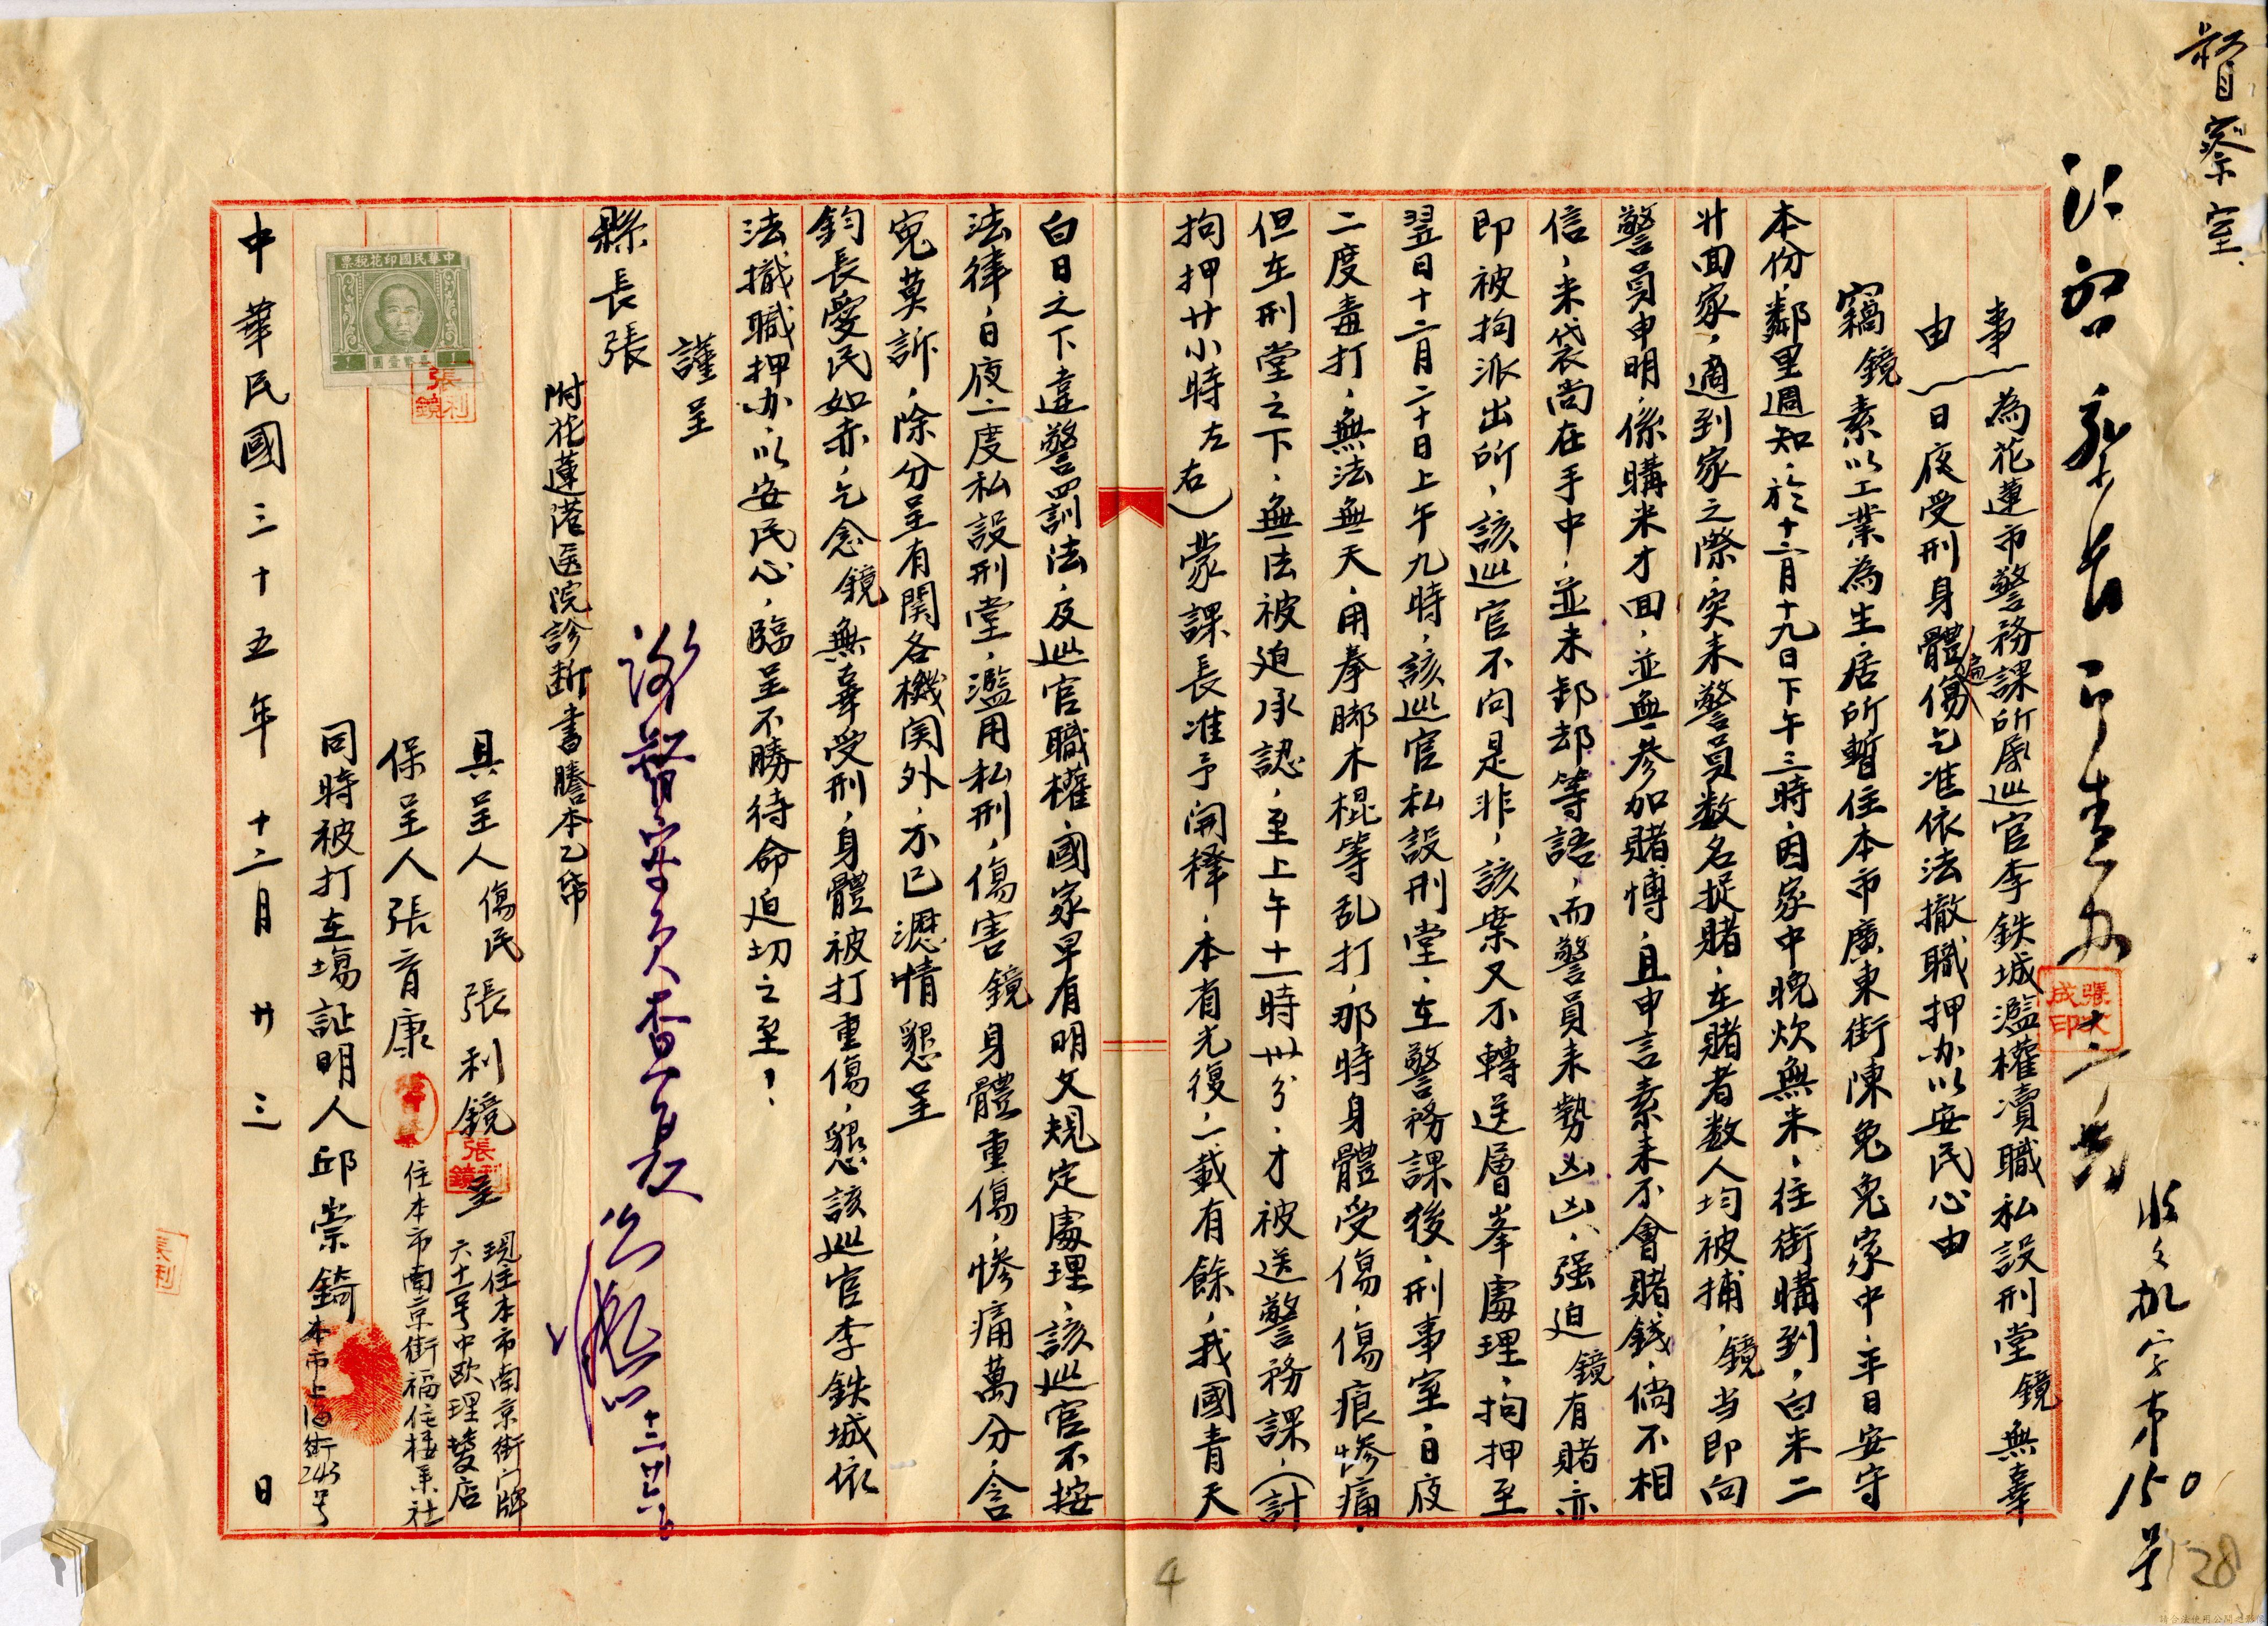 督察室
收文机字第150號
事為花蓮市警務課所屬巡官李鉄城濫權瀆職私設刑堂鏡無辜
由日夜受刑身體遍傷乞准依法撤職押办以安民心由
竊鏡素以工業為生、居所暫住本市廣東街陳兔兔家中、平日安守
本份、鄰里週知、於十二月十九日下午三時、因家中晚炊無米、往街購到、白米二
廾回家、適到家之際、突来警員数名捉賭、在賭者数人均被捕、鏡当即向
警員申明、係購米才回、並無參加賭博、且申言素来不會賭錢、倘不相
信、米袋尚在手中、並未卸却等語、而警員来勢凶凶、强迫鏡有賭、亦
即被拘派出所、該巡官不问是非、該案又不轉送層峯處理、拘押至
翌日十二月二十日上午九時、該巡官私設刑堂、在警務課後、刑事室、日夜
二度毒打、無法無天、用拳脚木棍等乱打、那時身體受傷、傷痕慘痛、
但在刑堂之下、無法被迫承認、至上午十一時卅分、才被送警務課、(計
拘押廿小時左右)蒙課長准予開釋、本省光復、一載有餘、我國青天
白日之下違警罰法、及巡官職權、國家早有明文規定處理、該巡官不按
法律、日夜二度私設刑堂、濫用私刑、傷害鏡身體重傷、慘痛萬分、含
寃莫訴、除分呈有関各機関外、不已瀝情懇呈
鈞長愛民如赤、乞念鏡無辜受刑、身體被打重傷、懇該巡官李鉄城依
法撤職押办、以安民心、臨呈不勝待命迫切之至!
謹呈
縣長張
謝督察員查复
十二廿六
附花蓮港医院診断書謄本乙帋
具呈人傷民張利鏡呈
現住本市南京街门牌
六十一号中欧理髮店
保呈人張育康
住本市南京街福住楼菓社
同時被打在場証明人邱崇錡
本市上海街243号
中華民國三十五年十二月廿三日
中華民國印花税票
張利鏡
張利鏡
4
28
請合法使用公開之影像